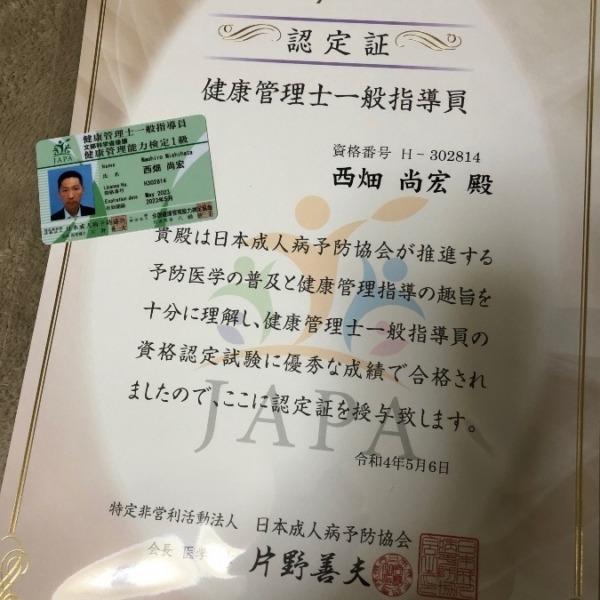 認定証
健康管理士一般指導員
資格番号 H-302814
西畑 尚宏 殿
貴殿は日本成人病予防協会が推進する
予防医学の普及と健康管理指導の趣旨を
十分に理解し、健康管理士一般指導員の
資格認定試験に優秀な成績で合格され
ましたので、ここに認定証を授与致します。
JAPA
令和4年5月6日
特定非営利活動法人 日本成人病予防協会
会長 医学 片野善夫
JAPA
健康管理士一般指導員
文部科学省後援
健康管理能力検定1級
Name Naohiro Nishihata
氏名 西畑 尚宏
License No. H302814
資格番号
Expiration date May 2023
有効期限 2023年5月